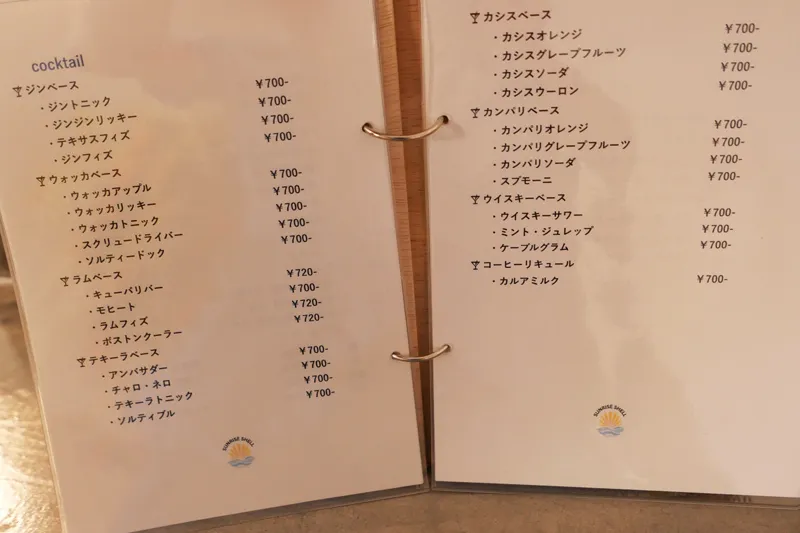 cocktail
ジンベース
・ジントニック ¥700-
・ジンジンリッキー ¥700-
・テキサスフィズ ¥700-
・ジンフィズ ¥700-
ウォッカベース
・ウォッカアップル ¥700-
・ウォッカリッキー ¥700-
・ウォッカトニック ¥700-
・スクリュードライバー ¥700-
・ソルティードック ¥700-
ラムベース
・キューバリバー ¥720-
・モヒート ¥700-
・ラムフィズ ¥720-
・ボストンクーラー ¥720-
テキーラベース
・アンバサダー ¥700-
・チャロ・ネロ ¥700-
・テキーラトニック ¥700-
・ソルティブル ¥700-
SUNRISE SHELL
カシスベース
・カシスオレンジ ¥700-
・カシスグレープフルーツ ¥700-
・カシスソーダ ¥700-
・カシスウーロン ¥700-
カンパリベース
・カンパリオレンジ ¥700-
・カンパリグレープフルーツ ¥700-
・カンパリソーダ ¥700-
・スプモーニ ¥700-
ウイスキーベース
・ウイスキーサワー ¥700-
・ミント・ジュレップ ¥700-
・ケーブルグラム ¥700-
コーヒーリキュール
・カルアミルク ¥700-
SUNRISE SHELL